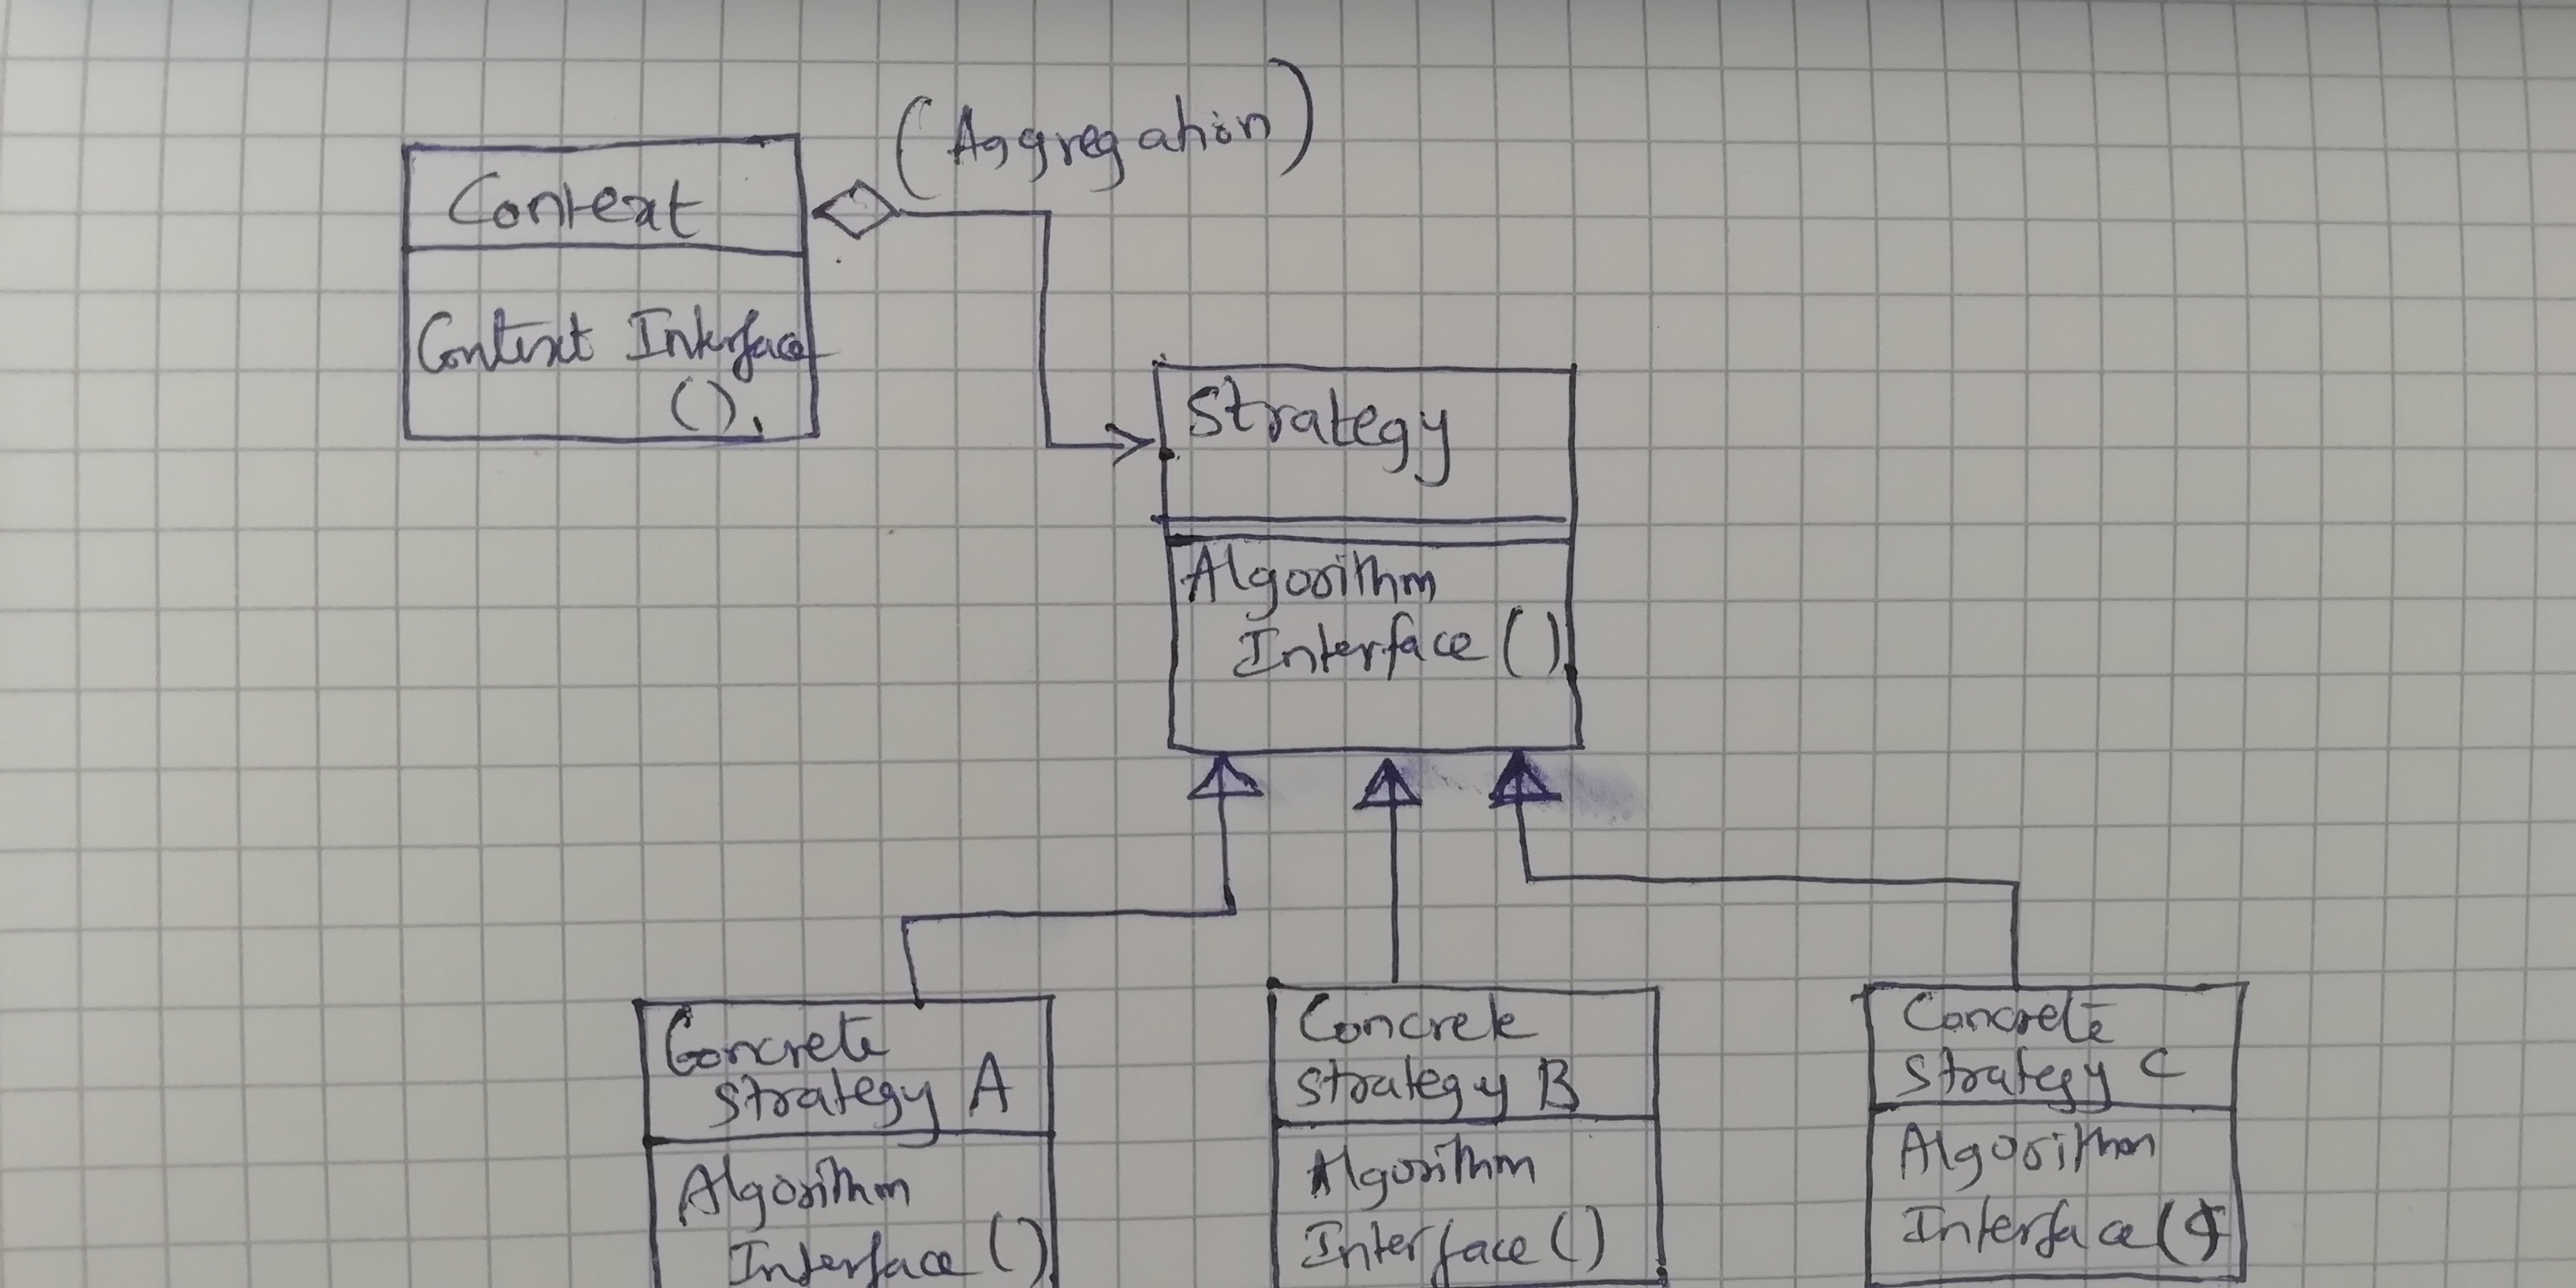 (Aggregation)
Context
Context Interface
().
Strategy
Algorithm
Interface ()
Concrete
strategy A
Algorithm
Interface ()
Concrete
strategy B
Algorithm
Interface ()
Concrete
strategy C
Algorithm
Interface ()